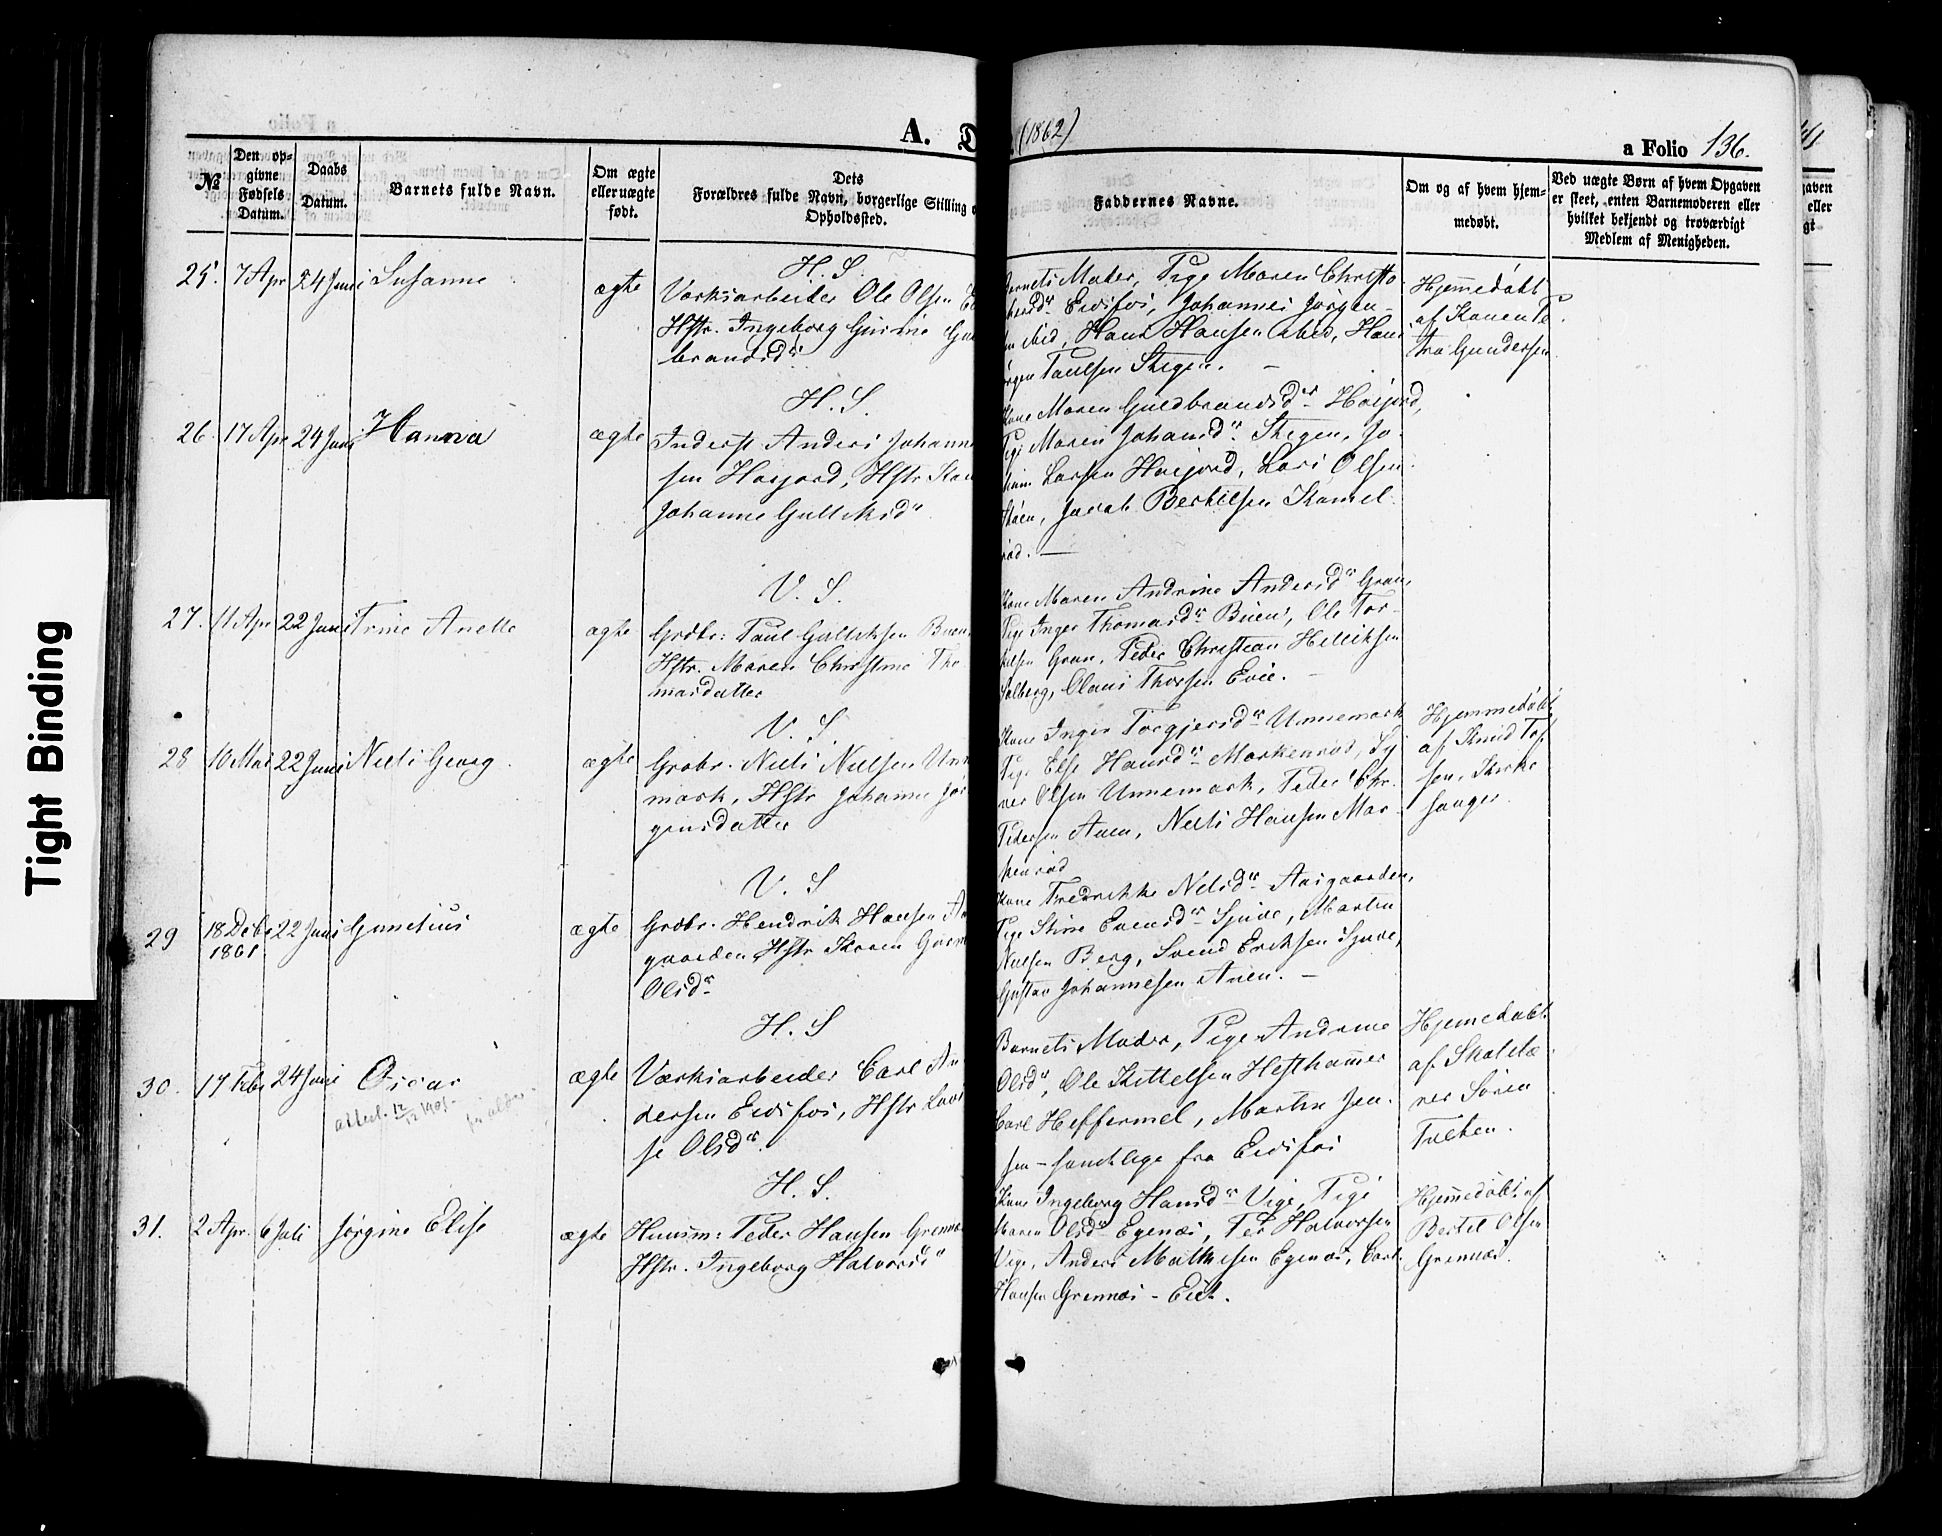 Tight Binding
A. D
(1862)
a Folio 136.
№
Den op-
givne
Fødsels
Datum.
Daabs
Datum.
Barnets fulde Navn.
Om ægte
eller uægte
født.
Dets
Forældres fulde Navn, borgerlige Stilling o
Opholdssted.
Faddernes Navne.
Om og af hvem hjem-
medøbt.
Ved uægte Børn af hvem Opgaven
er skeet, enten Barnemoderen eller
hvilket bekjendt og troværdigt
Medlem af Menigheden.
H. S.
25. 7 Apr 24 Juni Susanne ægte
Værksarbeider Ole Olsen E
Hstr. Ingeborg Gurine Gu
brandsdr
Barnets Moder, Pige Maren Christo
Eidsfos, Johannes Jørgen-
ibid, Hans Hansen ibid, Hans
Jørgen Paulsen Stigen. —
Hjemmedøbt
af Konen Pe
tra Gundersen
H. S.
26. 17 Apr 24 Juni Hanna ægte
Inderst Anders Johanne
sen Hasjord, Hstr Kar
Johanne Gulliksdr
Kone Maren Guldbrandsdr Hasjord,
Pige Maren Johansdr Stigen, Jo-
Larsen Hasjord, Lars Olsen
Jacob Bertilsen Kamel
rød. —
V. S.
27. 11 Apr 22 Juni Trine Anette ægte
Grdbr: Paul Gulliksen Buen
Hstr. Maren Christine Tho
masdatter
Kone Maren Andrine Andersdr Gran,
Pige Inger Thomasdr Buen, Ole Tor-
kilsen Gran, Peder Christian Helliksen
Solberg, Olaus Thorsen Evie. —
V. S.
28 10 Mai 22 Juni Niels Georg ægte
Grdbr. Niels Nielsen Unne
mark, Hstr Johanne Jør
gensdatter
Kone Inger Torgjersdr Unnemark
Pige Else Hansdr Markenrød, Sy
ver Olsen Unnemark, Peder Chr.
Pedersen Auen, Niels Hansen Mar-
kenrød
Hjemmedøbt
af Knud Tof
sen, Kirke
sanger.
V. S
29 18 Debr 1861. 22 Juni Gunelius ægte
Grdbr. Hendrik Hansen Aas
gaarden, Hstr Karen Gurine
Olsdr
Kone Fredrikke Nilsdr Aasgaarden,
Pige Stine Evensdr Sjuve, Martin
Nielsen Berg, Svend Eriksen Sjuve,
Gustav Johannesen Auen. —
H. S
30. 17 Febr 24 Juni Oscar ægte
attest. 12/12 1901.
Værksarbeider Carl An
dersen Eidsfos, Hstr Lovi
se Olsdr.
Barnets Moder, Pige Andrine
Olsdr, Ole Kittelsen Hesthammer
Carl Heffermel, Martin Jen-
sen — samtlige fra Eidsfos
Hjemmedøbt
af Skolelæ
rer Søren
Tveten.
H. S.
31. 2 Apr. 6 Juli Jørgine Elise ægte
Huusm: Peder Hansen Grennes
Hstr. Ingeborg Halvorsdr
Kone Ingeborg Hansdr Vige, Pige
Maren Olsdr Egenæs, Per Halvorsen
Vige, Anders Mathisen Egenæs, Carl
Hansen Grennæs - Eid.
Hjemmedøbt af
Bertel Olsen
Grennæs.